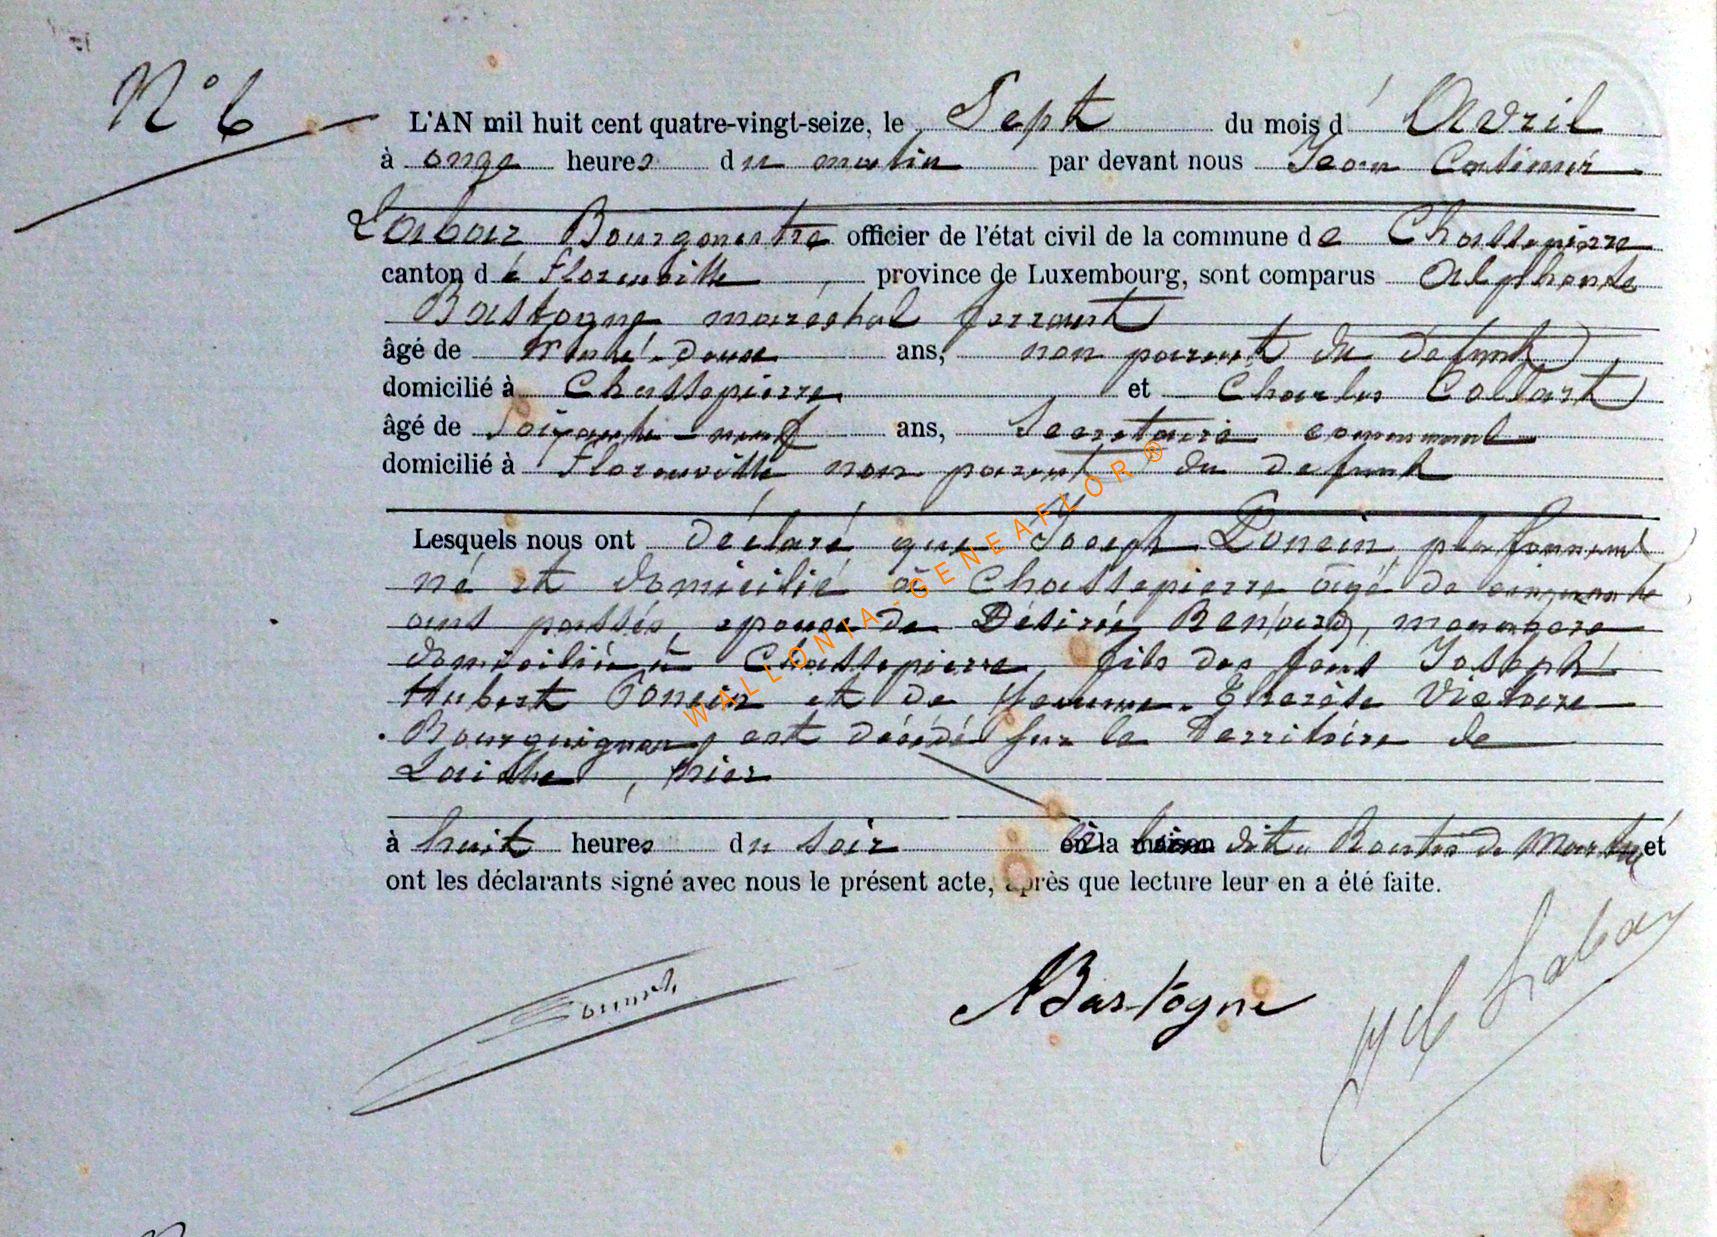 N° 6
L'AN mil huit cent quatre-vingt-seize, le Sept du mois d'Avril
à onze heures du matin par devant nous Jean Casimir
Labar Bourgmestre officier de l'état civil de la commune de Chassepierre
canton de Florenville, province de Luxembourg, sont comparus Alphonse
Bastogne maréchal ferrant
âgé de trente-deux ans, non parent du défunt,
domicilié à Chassepierre et Charles Collart
âgé de soixante-neuf ans, Secrétaire communal
domicilié à Florenville, non parent du defunt
Lesquels nous ont déclaré que Joseph Poncin, plafonneur
né et domicilié à Chassepierre âgé de cinquante
ans passés, epoux de Désirée Renard, menagère
domiciliée à Chassepierre, fils des feus Joseph
Hubert Poncin et de Jeanne-Therèse Victoire
Bourguignon, est décédé sur le Territoire de
Laiche, hier
à huit heures du soir la dite Routes de et
ont les déclarants signé avec nous le présent acte, après que lecture leur en a été faite.
ABastogne
JC Labar
WALLONIA-GENEAFLOR®